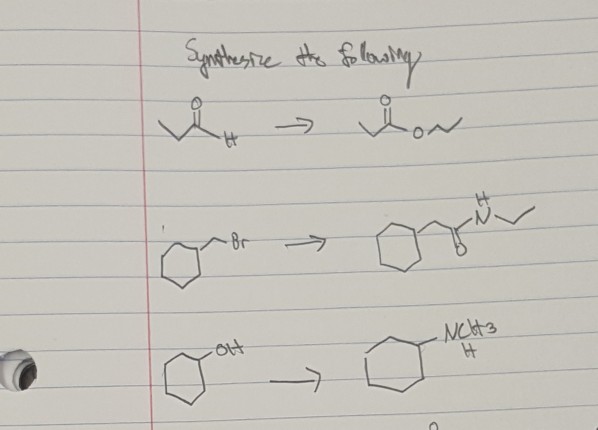 Synthesize the following
O
H
→
O
O
Br
→
H
N
O
OH
→
NCH3
H